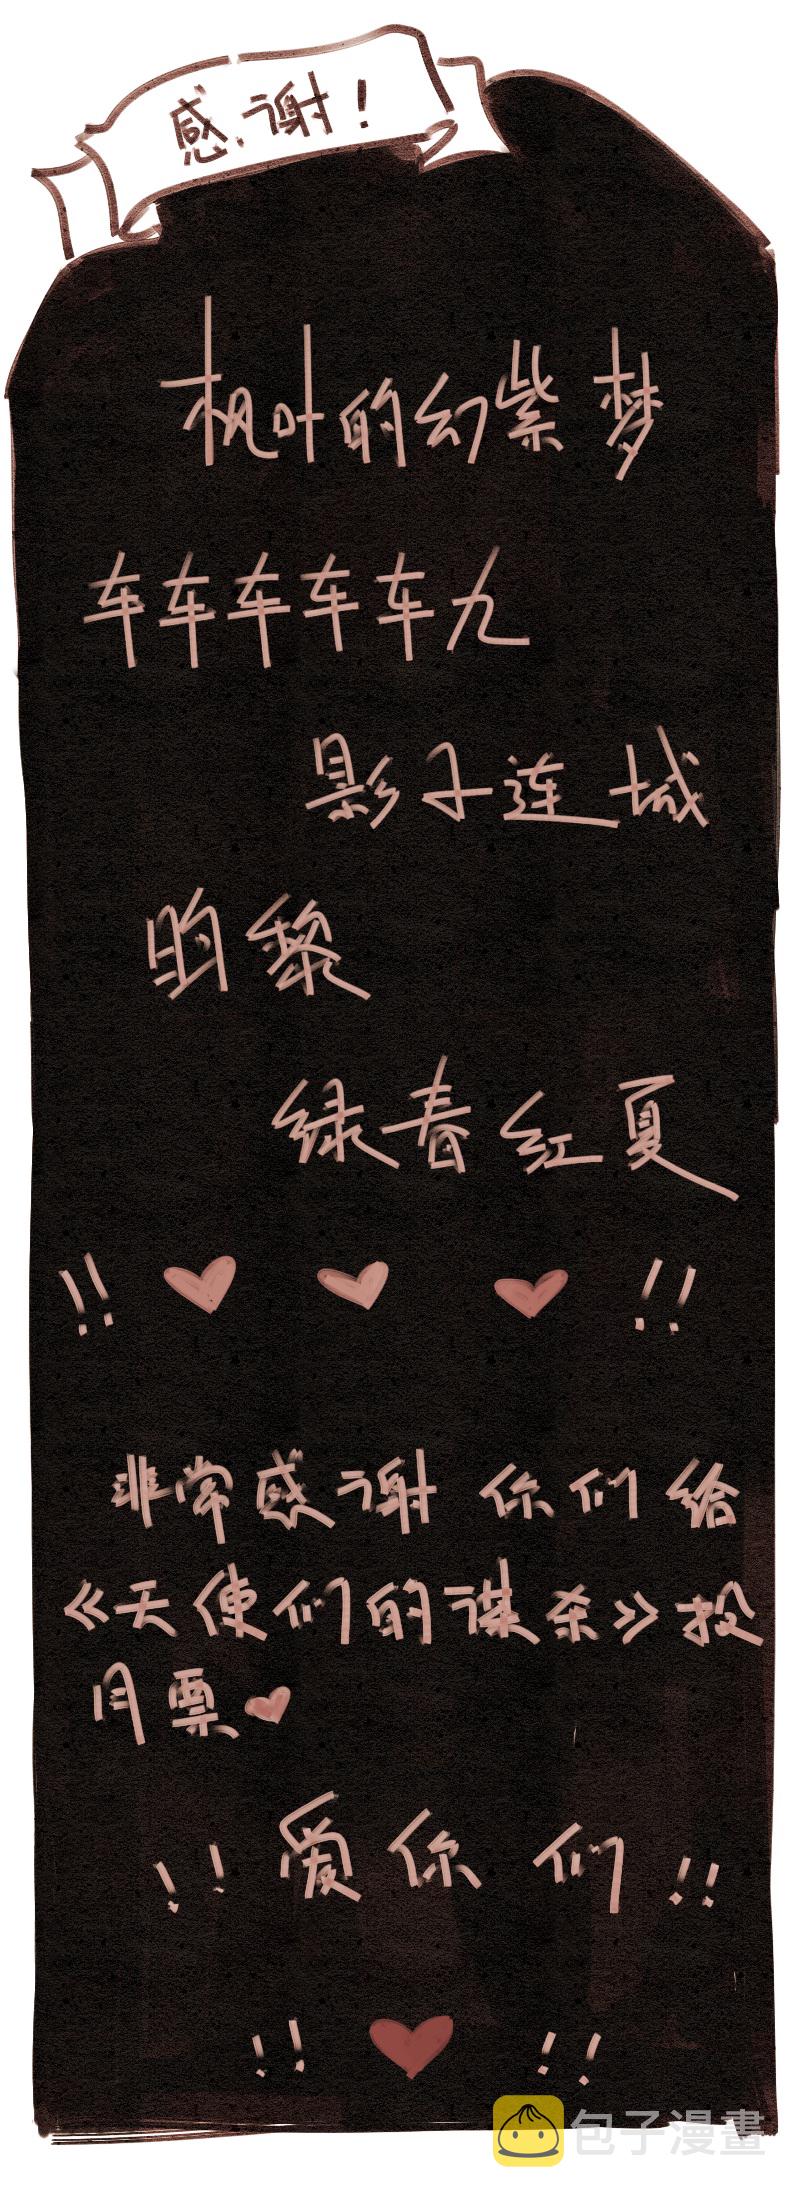 感谢!
枫叶的幻紫梦
车车车车车九
影子连城
昀黎
绿春红夏
!! ♥ ♥ ♥ !!
非常感谢 你们给
《天使们的谋杀》投
月票♥
!! 爱你们!!
!! ♥ !!
包子漫畫